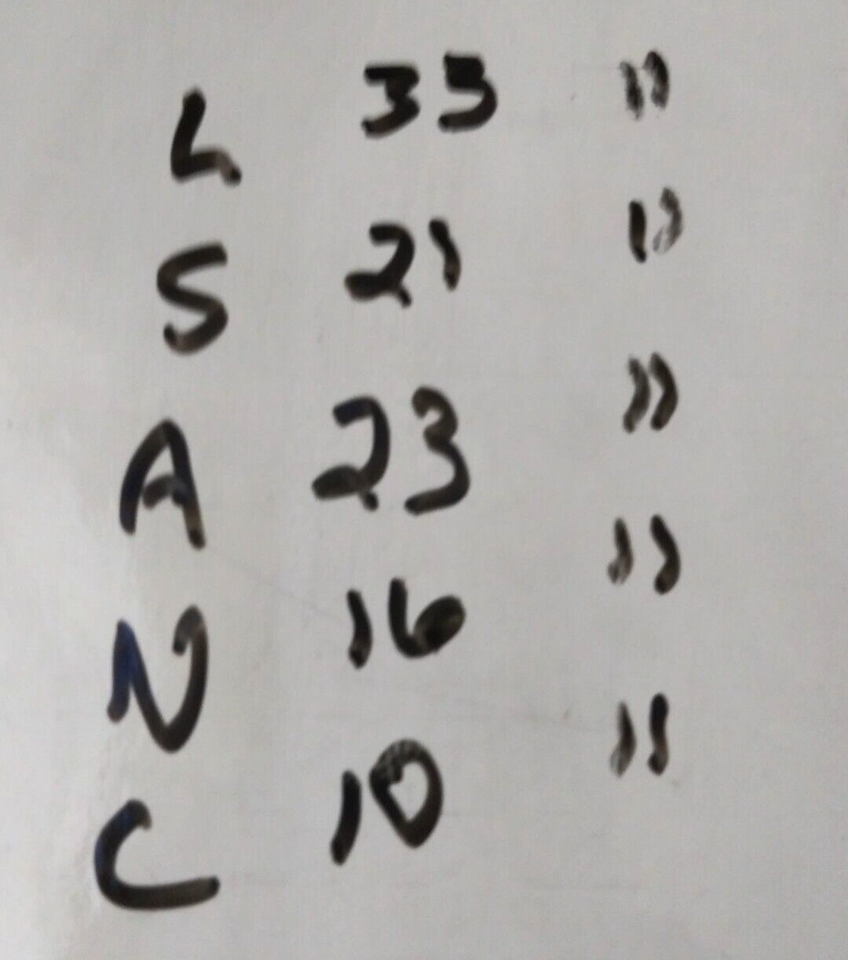 L 33 "
S 21 "
A 23 "
N 16 "
C 10 "